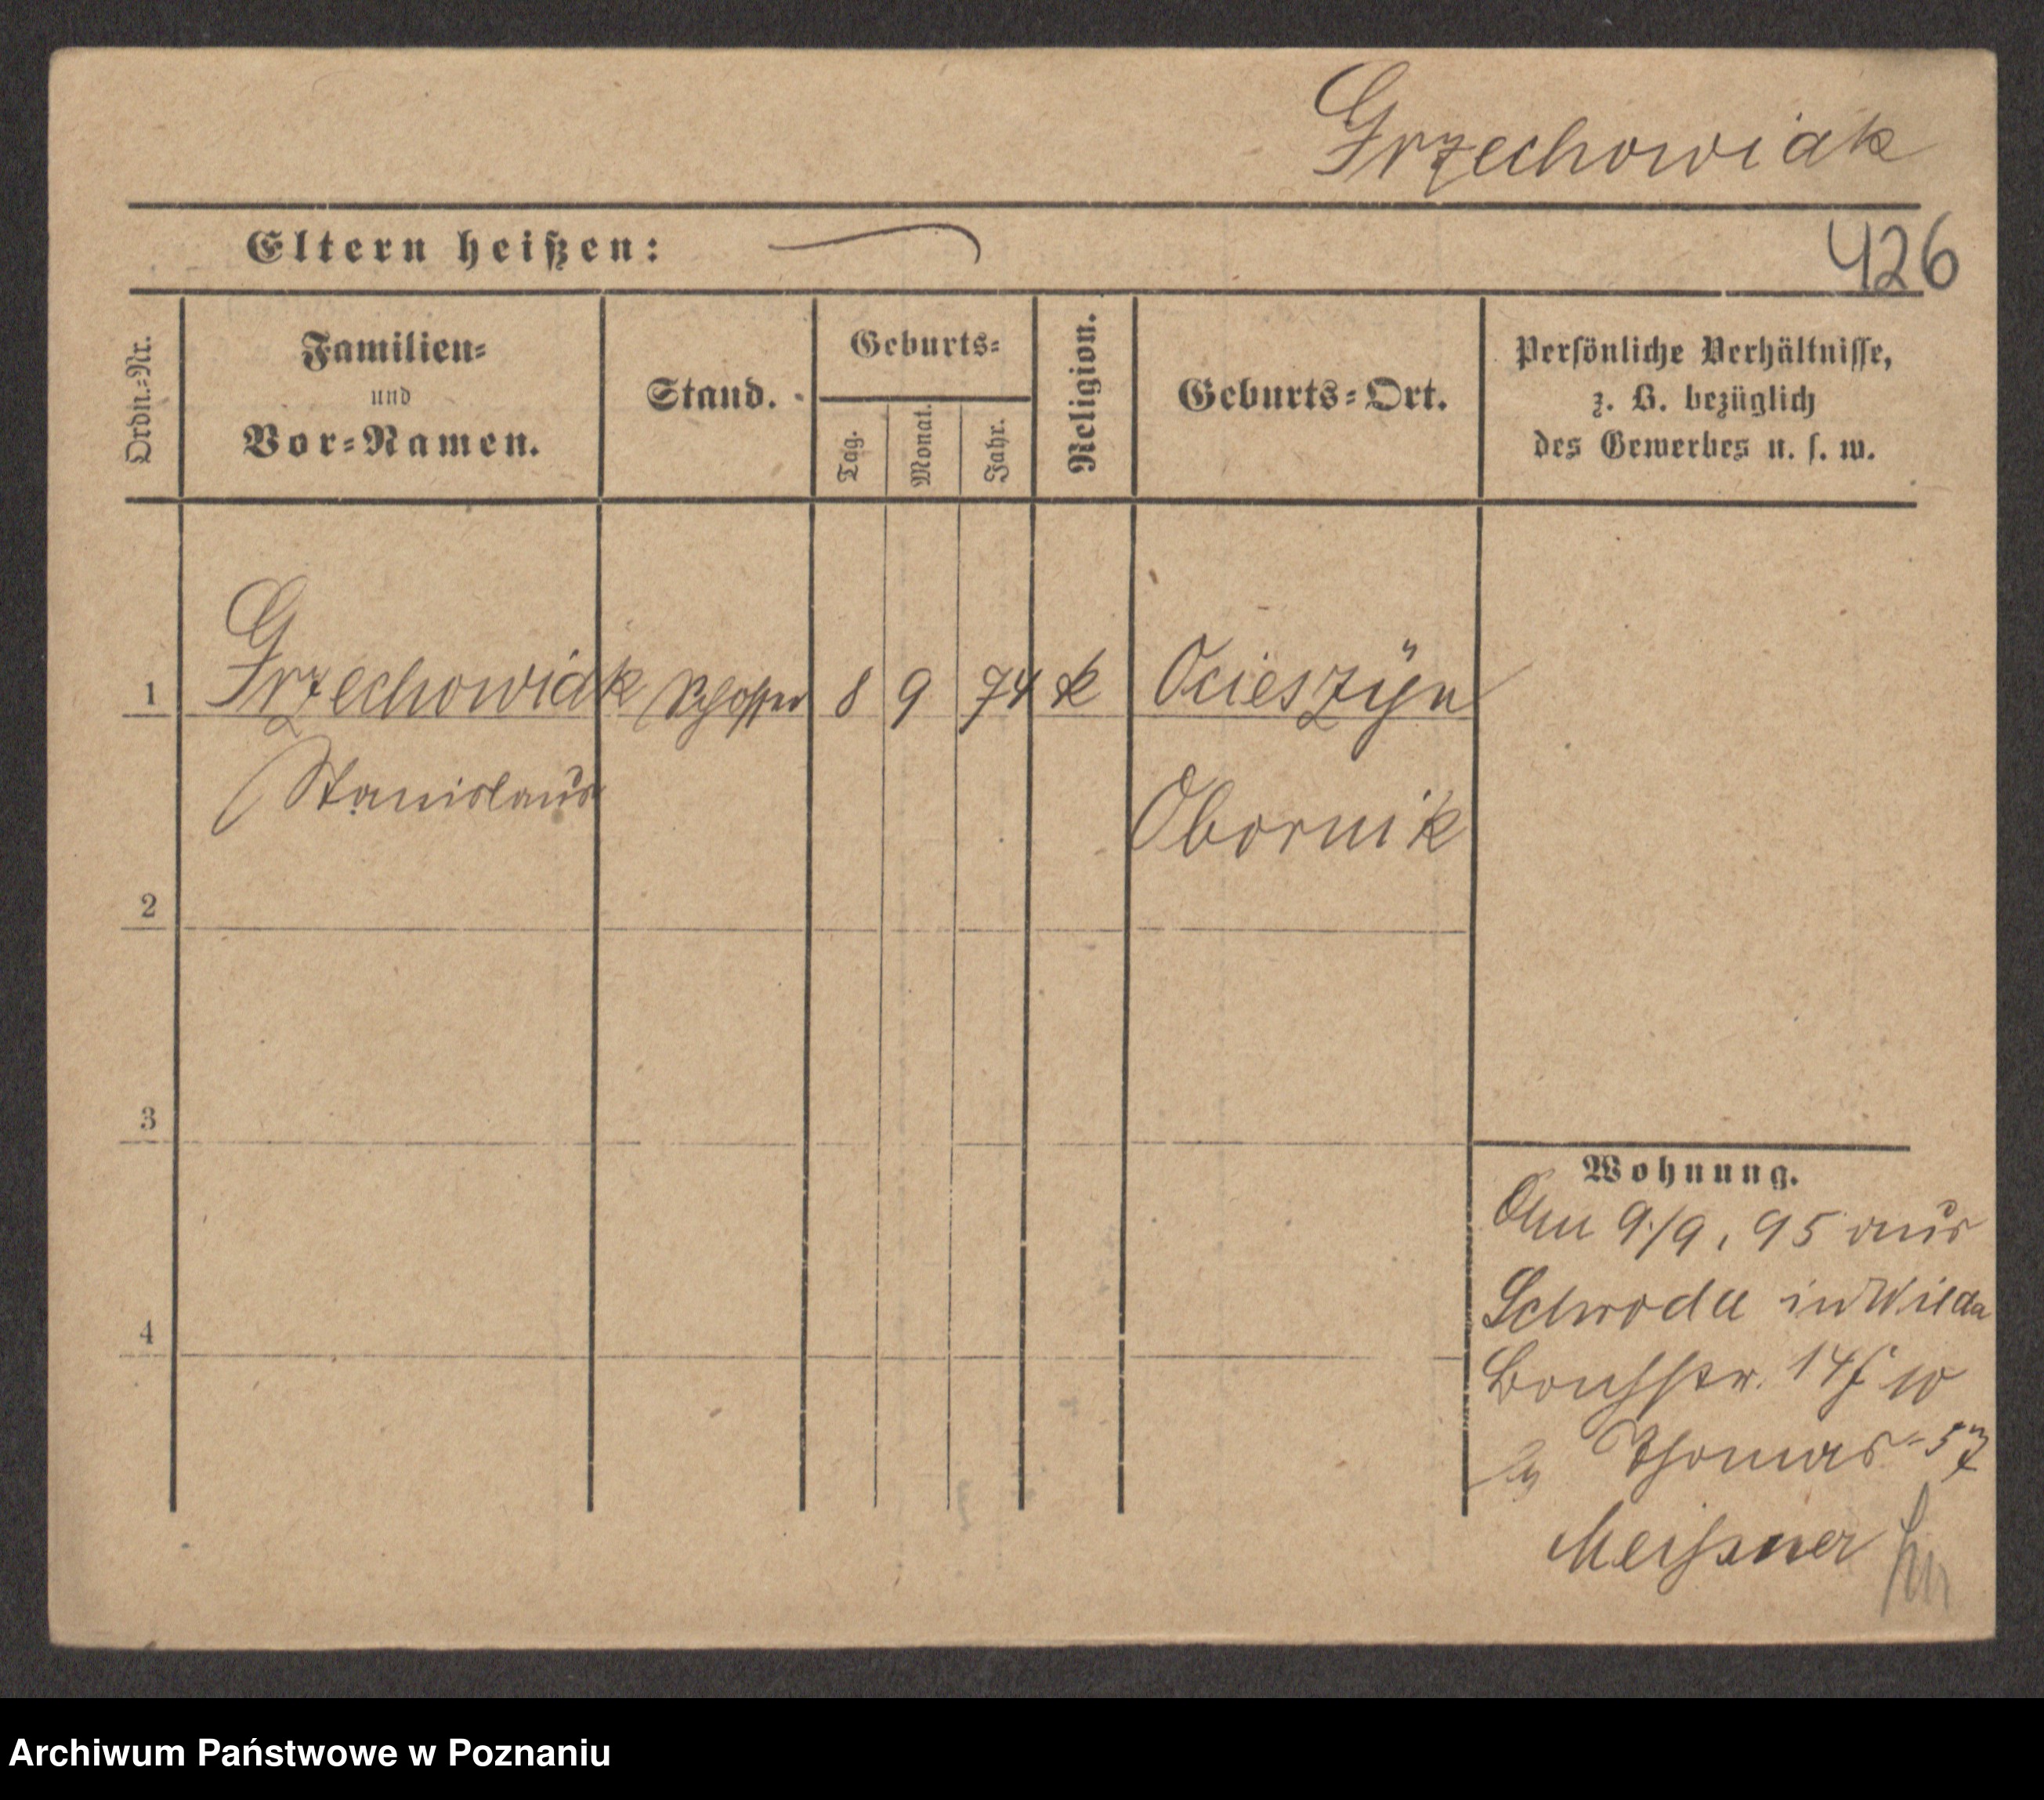 Grzechowiak
Eltern heißen:
426
Ordn.-Nr.
Familien-
und
Vor-Namen.
Stand.
Geburts-
Tag.
Monat.
Jahr.
Religion.
Geburts-Ort.
Persönliche Verhältnisse,
z. B. bezüglich
des Gewerbes u. s. w.
1 Grzechowiak Schlosser 8 9 74 k Ocieszyn
Stanislaus Obornik
2
3
4
Wohnung.
9/9. 95 aus
Schroda in Wilda
14
Thomas
Meissner
Archiwum Państwowe w Poznaniu